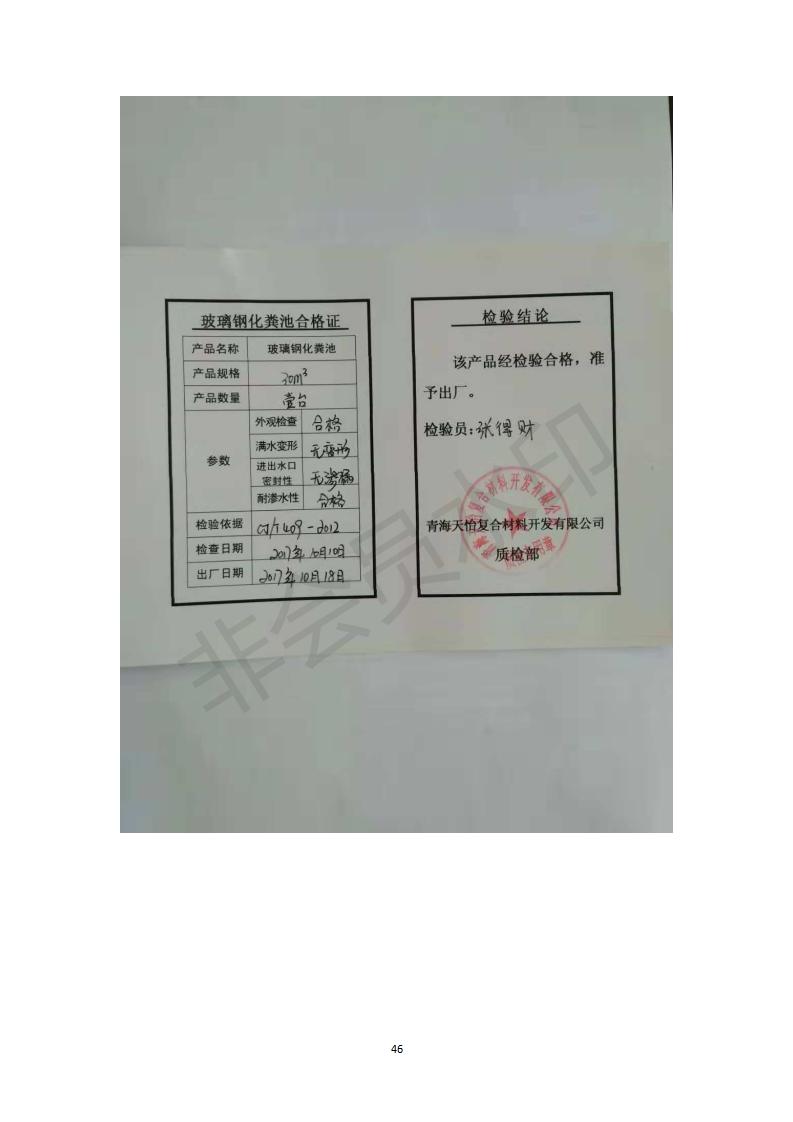 玻璃钢化粪池合格证
产品名称 玻璃钢化粪池
产品规格 30m³
产品数量 壹台
参数
外观检查 合格
满水变形 无变形
进出水口密封性 无渗漏
耐渗水性 合格
检验依据 CJ/T409-2012
检查日期 2017年10月10日
出厂日期 2017年10月18日
检验结论
该产品经检验合格，准
予出厂。
检验员:张得财
青海天怡复合材料开发有限公司
质检部
青海天怡复合材料开发有限公司
非会员水印
46